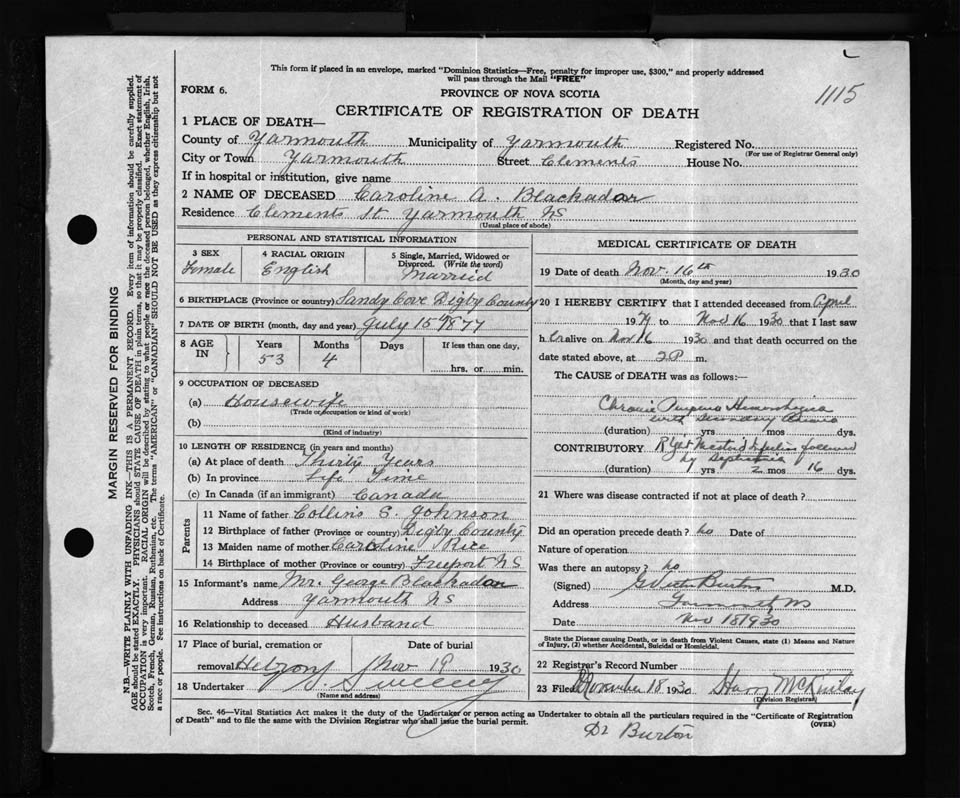 This form if placed in an envelope, marked "Dominion Statistics—Free, penalty for improper use, $300," and properly addressed
will pass through the Mail "FREE"
FORM 6.
PROVINCE OF NOVA SCOTIA
1115
CERTIFICATE OF REGISTRATION OF DEATH
1 PLACE OF DEATH—
County of Yarmouth Municipality of Yarmouth Registered No.
(For use of Registrar General only)
City or Town Yarmouth Street Clements House No.
If in hospital or institution, give name
2 NAME OF DECEASED Caroline A. Blackadar
Residence Clements St Yarmouth NS
(Usual place of abode)
PERSONAL AND STATISTICAL INFORMATION
3 SEX
Female
4 RACIAL ORIGIN
English
5 Single, Married, Widowed or
Divorced. (Write the word)
Married
6 BIRTHPLACE (Province or country) Sandy Cove Digby County
7 DATE OF BIRTH (month, day and year) July 15 1877
8 AGE IN
Years Months Days If less than one day,
53 4 hrs. or min.
9 OCCUPATION OF DECEASED
(a) Housewife
(Trade or occupation or kind of work)
(b)
(Kind of industry)
10 LENGTH OF RESIDENCE (in years and months)
(a) At place of death Thirty Years
(b) In province Life Time
(c) In Canada (if an immigrant) Canada
Parents
11 Name of father Collins S. Johnson
12 Birthplace of father (Province or country) Digby County
13 Maiden name of mother Caroline Rice
14 Birthplace of mother (Province or country) Freeport NS
15 Informant's name Mr. George Blackadar
Address Yarmouth NS
16 Relationship to deceased Husband
17 Place of burial, cremation or Date of burial
removal Hebron Nov 19 1930
18 Undertaker Sweeny
(Name and address)
MEDICAL CERTIFICATE OF DEATH
19 Date of death Nov. 16th 1930
(Month, day and year)
20 I HEREBY CERTIFY that I attended deceased from April
19 to Nov 16 1930 that I last saw
her alive on Nov 16 1930 and that death occurred on the
date stated above, at 2 P m.
The CAUSE of DEATH was as follows:—
Chronic Purpura Hemorrhagica
with Secondary
(duration) yrs mos dys.
CONTRIBUTORY followed
by
(duration) yrs 2 mos 16 dys.
21 Where was disease contracted if not at place of death?
Did an operation precede death? no Date of
Nature of operation
Was there an autopsy? no
(Signed) Burton M.D.
Address Yarmouth NS
Date Nov 18 1930
State the Disease causing Death, or in death from Violent Causes, state (1) Means and Nature
of Injury, (2) whether Accidental, Suicidal or Homicidal.
22 Registrar's Record Number
23 Filed November 18 1930 Harry McKinlay
(Division Registrar)
Sec. 46—Vital Statistics Act makes it the duty of the Undertaker or person acting as Undertaker to obtain all the particulars required in the "Certificate of Registration
of Death" and to file the same with the Division Registrar who shall issue the burial permit.
(OVER)
Dr Burton
MARGIN RESERVED FOR BINDING
N.B.—WRITE PLAINLY WITH UNFADING INK—THIS IS A PERMANENT RECORD. Every item of information should be carefully supplied.
AGE should be stated EXACTLY. PHYSICIANS should STATE CAUSE OF DEATH in plain terms, so that it may be properly classified. Exact statement of
OCCUPATION is very important. RACIAL ORIGIN will be described by stating to what people or race the deceased person belonged, whether English, Irish,
Scotch, French, German, Russian, Ruthenian, etc. The terms "AMERICAN" or "CANADIAN" SHOULD NOT BE USED as they express citizenship but not
a race or people. See instructions on back of Certificate.